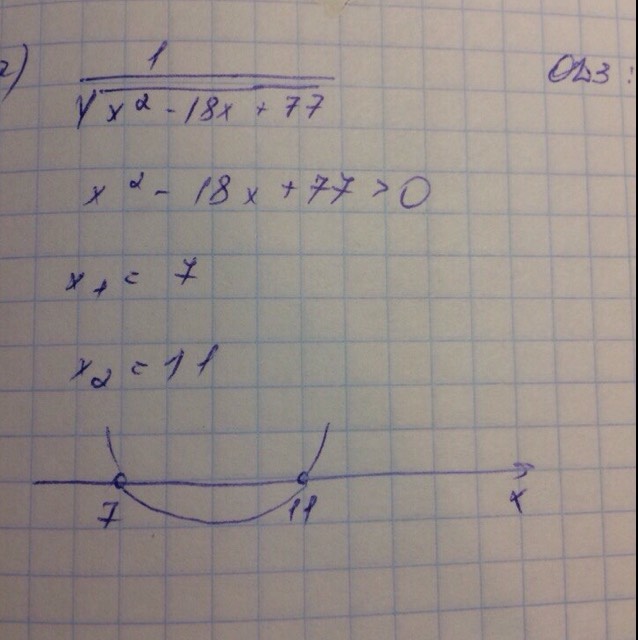 1
√x² - 18x + 77
ОДЗ:
x² - 18x + 77 > 0
x₁ = 7
x₂ = 11
7 11 x